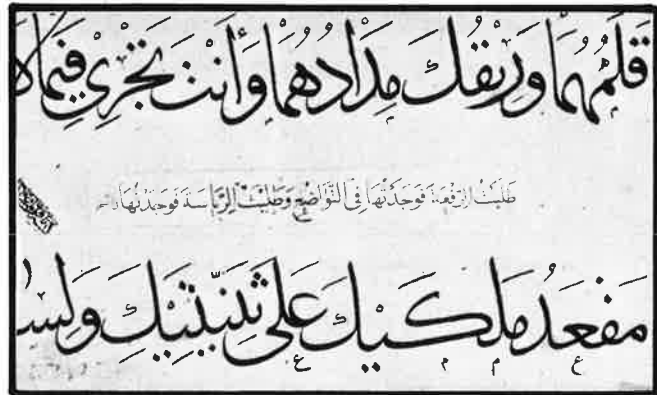 قَلَمُهُمَا وَرِيقُكَ مِدَادُهُمَا وَأَنْتَ تَجْرِي فِيمَا لَا
طَلَبْتُ الرِّفْعَةَ فَوَجَدْتُهَا فِي التَّوَاضُعِ وَطَلَبْتُ الرِّيَاسَةَ فَوَجَدْتُهَا
مَقْعَدُ مَلَكَيْكَ عَلَى ثَنِيَّتَيْكَ وَلِسَا